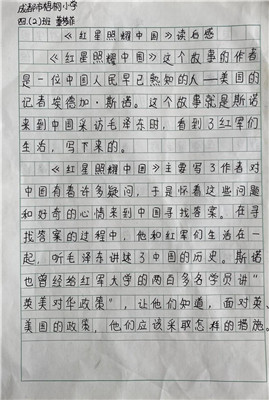 成都市梧桐小学
四.(2)班
《红星照耀中国》读后感
《红星照耀中国》这个故事的作者
是一位中国人民早已熟知的人——美国的
记者埃德加·斯诺。这个故事就是斯诺
来到中国采访毛泽东时，看到了红军们
生活，写下来的。
《红星照耀中国》主要写了作者对
中国有着许多疑问，于是怀着这些问题
和好奇的心情来到中国寻找答案。在寻
找答案的过程中，他和红军们生活在一
起，听毛泽东讲述了中国的历史。斯诺
也曾经给红军大学的两百多名学员讲“
英美对华政策”，让他们知道，面对英、
美国的政策，他们应该采取怎样的措施。